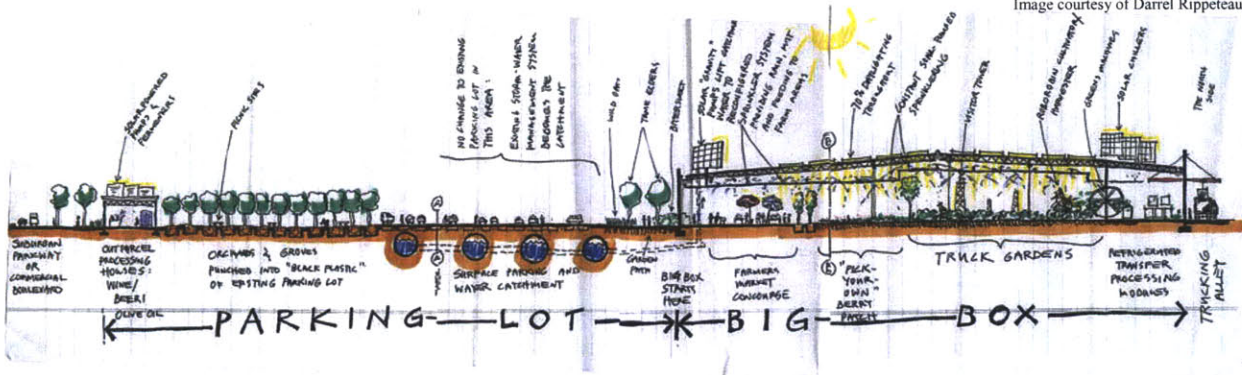 Image courtesy of Darrel Rippeteau
SOLAR POWERED
PUMPS &
FERMENTERS
PICNIC SITES
NO CHANGE TO EXISTING
PARKING LOT IN
THIS AREA:
EXISTING STORM-WATER
MANAGEMENT SYSTEM
BECOMES THE
CATCHMENT
WILD OAT
TAME ELDERS
BITTERSWEET
SOLAR "GRAVITY"
PUMPS LIFT CISTERN
WATER TO
RECONFIGURED
SPRINKLER SYSTEM
PROVIDING RAIN, MIST
AND FEEDING TO
FARM AREAS
70%
TRANSPARENT
CONSTANT SOLAR POWERED
SPRINKLERING
VISITOR TOWER
GREENS MACHINES
SOLAR CHILLERS
THE NEON
SIDE
SUBURBAN
PARKWAY
OR
COMMERCIAL
BOULEVARD
OUTPARCEL
PROCESSING
HOUSES:
WINE/
BEER/
OLIVE OIL
ORCHARDS & GROVES
PUNCHED INTO "BLACK PLASTIC"
OF EXISTING PARKING LOT
SURFACE PARKING AND
WATER CATCHMENT
GARDEN
PATH
BIG BOX
STARTS
HERE
FARMERS
MARKET
CONCOURSE
"PICK-
YOUR-
OWN"
BERRY
PATCH
TRUCK GARDENS
REFRIGERATED
TRANSFER
PROCESSING
MODULES
TRUCKING
ALLEY
PARKING LOT
BIG BOX